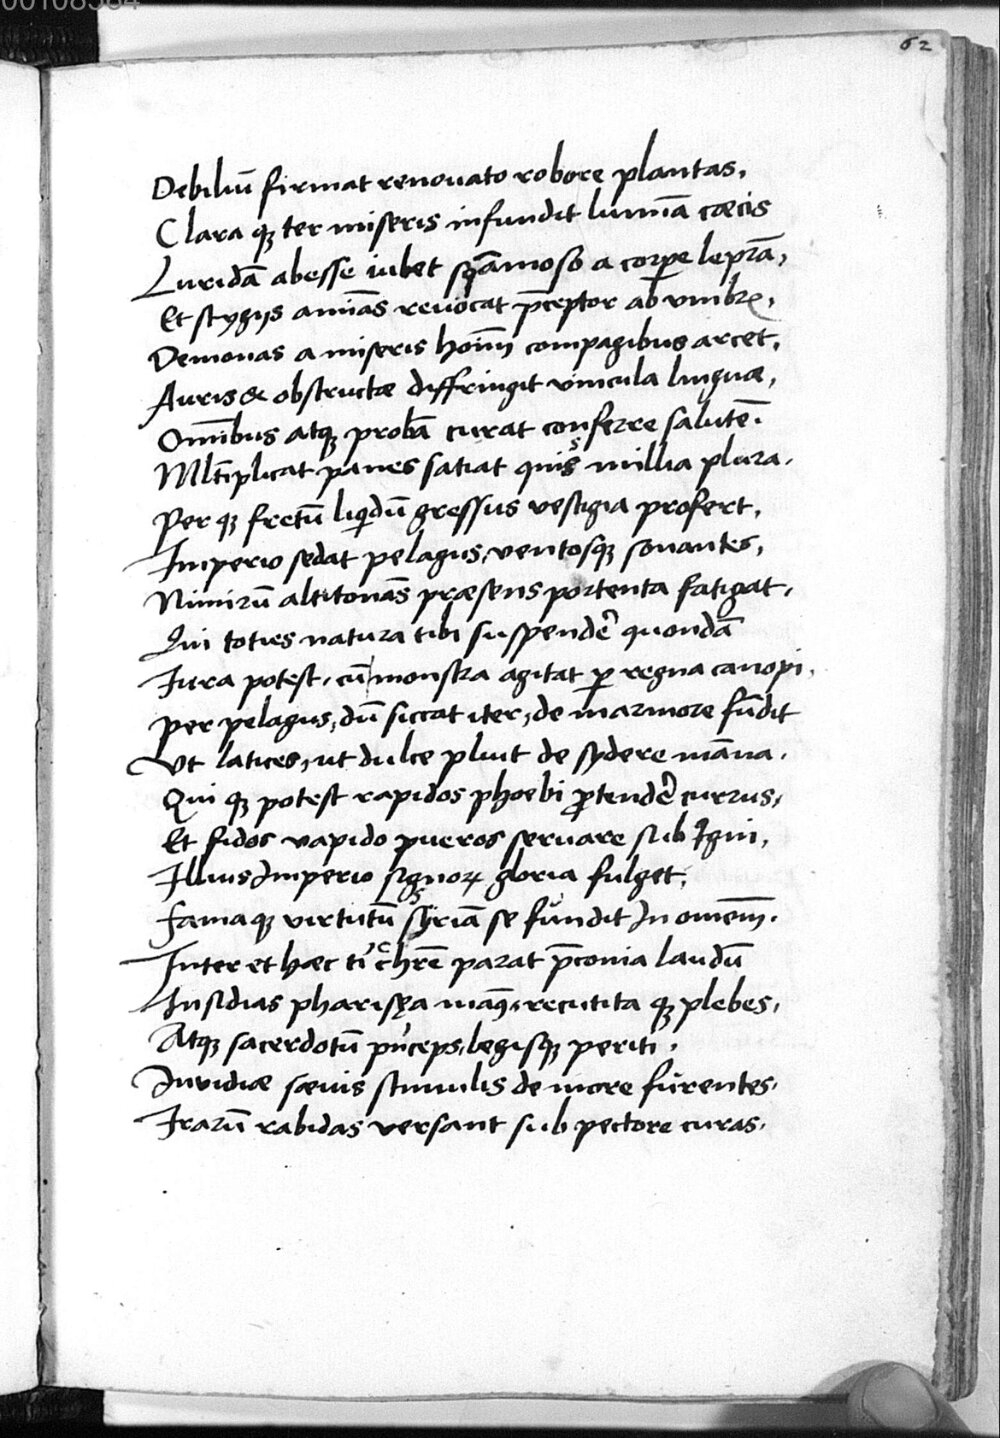 00108564
62
Debiliū firmat renouato robore plantas,
Clara qȝ ter miseris infundit lumīa cæcis
Luridā abesse iubet sqāmoso a corpe leprā,
Et stygijs animās reuocat p̄ceptor ab vmbrꝭ,
Demonas a miseris hoīm compagibus arcet,
Auris & obstructæ diffringit vincula linguæ,
Omībus atqȝ probā curat conferre salutē.
Mltiplicat panes satiat quisꝫ millia plura.
Per qȝ fretū liqdū gressus vestigia profert,
Imperio sedat pelagus, ventosqȝ sonantes,
Nimirū altitonās præsens portenta fatigat,
Qui toties natura tibi suspendē quondā
Iura potest, cū monstra agitat ꝑ regna canopi,
Per pelagus, dū siccat iter, de marmore fūdit
Vt latices, ut dulce pluit de sydere māna.
Qui qȝ potest rapidos phoebi ꝓtendē currus,
Et fidos vapido pueros seruare sub Igni,
Illius Imperio signoꝝ gloria fulget,
Famaqȝ virtutū syriā se fundit In omēm.
Inter et hæc tī chrē parat p̄conia laudū
Insidias pharisęa man9, recutita qȝ plebes,
Atqȝ sacerdotū pīnceps, legisqȝ periti,
Inuidiæ sæuis stimulis de more furentes,
Irarū rabidas versant sub pectore curas,